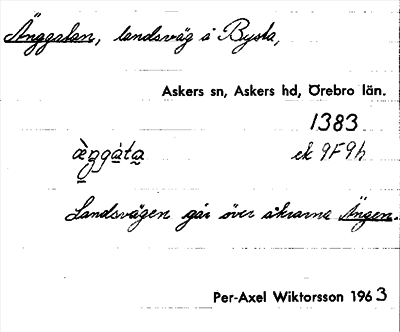 Änggatan, landsväg å Bysta,
Askers sn, Askers hd, Örebro län.
1383
ek 9F9h
Landsvägen går över åkrarna Ängen.
Per-Axel Wiktorsson 1963